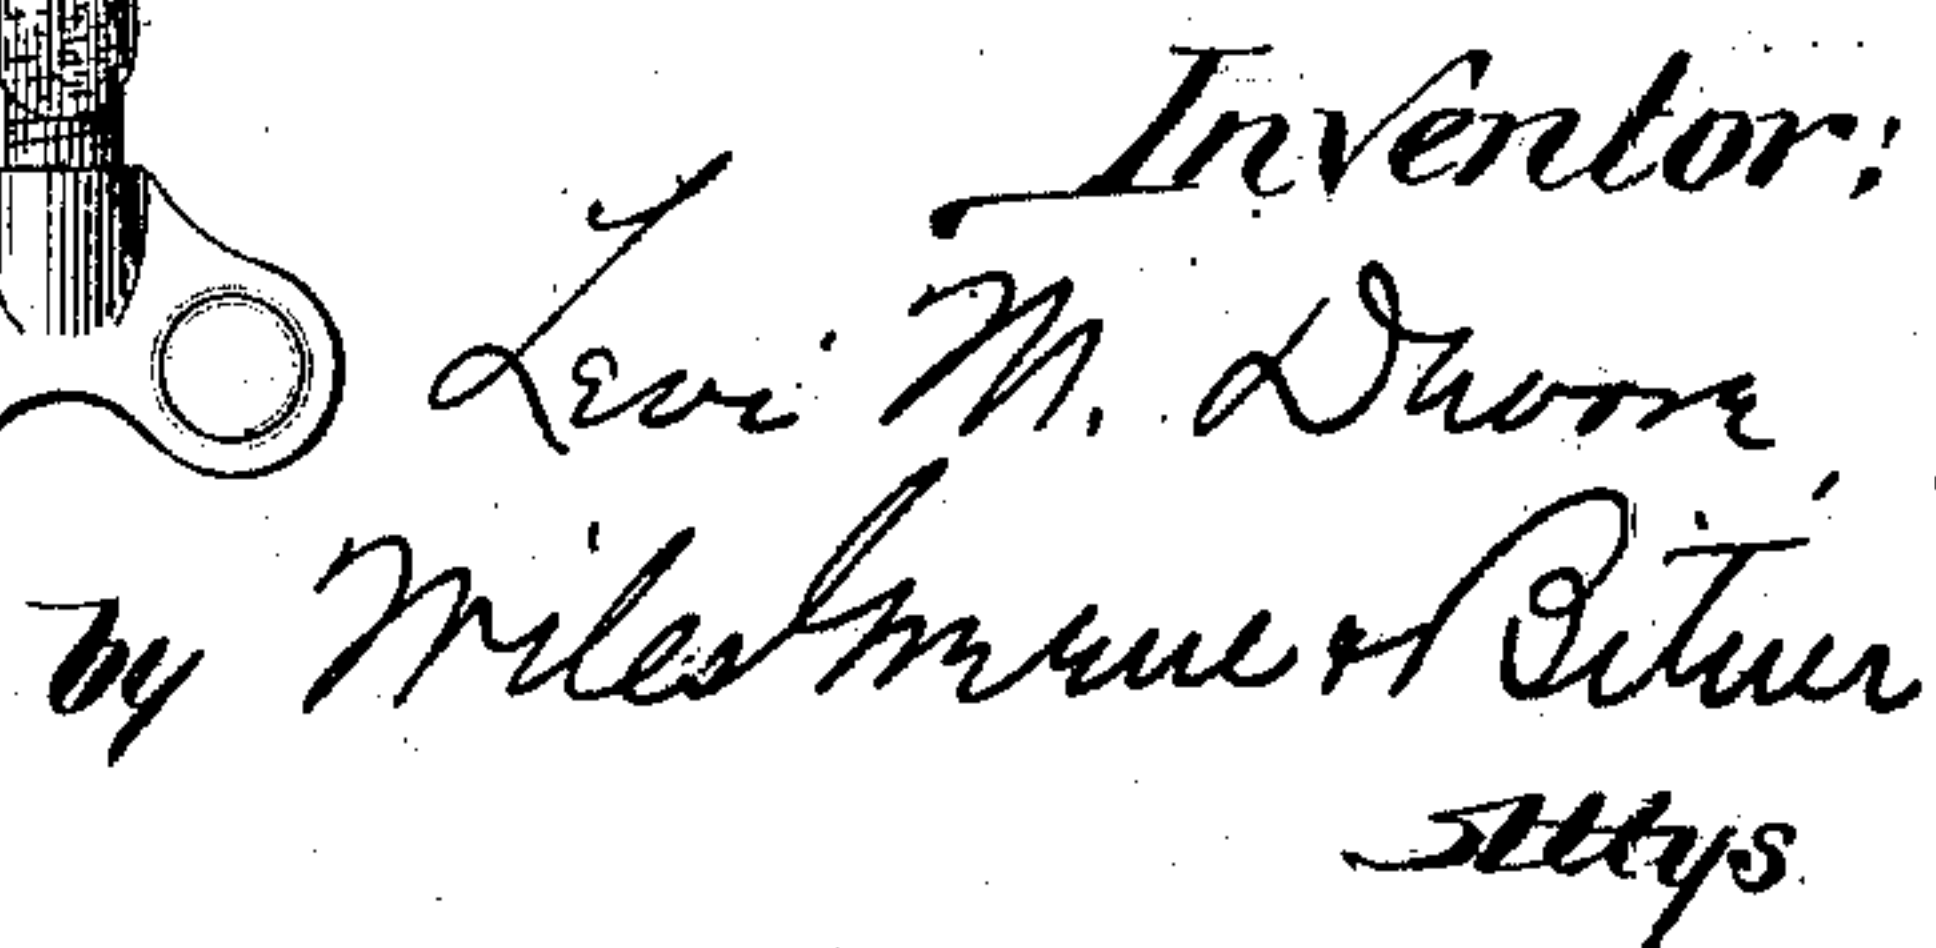 Inventor:
Levi M. Devore
by Miles Greene & Bitner
Attys